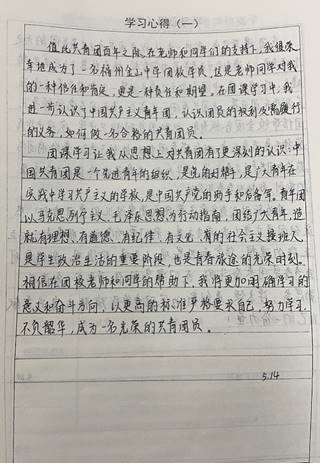 学习心得（一）
值此共青团百年之际，在老师和同学们的支持下，我很荣
幸地成为了一名福州金山中学团校学员，这是老师同学对我
的一种信任和肯定，更是一种责任和期望。在团课学习中，我
进一步认识了中国共产主义青年团，认识团员的权利及需履行
的义务，如何做一名合格的共青团员。
团课学习让我从思想上对共青团有了更深刻的认识：中
国共青团是一个先进青年的组织，是党的好帮手，是广大青年在
实践中学习共产主义的学校，是中国共产党的助手和后备军。青年团
以马克思列宁主义、毛泽东思想为行动指南，团结广大青年，造
就有理想、有道德、有纪律、有文化、有的社会主义接班人
是学生政治生活的重要阶段，也是青春旅途的光荣时刻。
相信在团校老师和同学的帮助下，我将更加明确学习的
意义和奋斗方向，以更高的标准严格要求自己，努力学习，
不负韶华，成为一名光荣的共青团员。
5.14